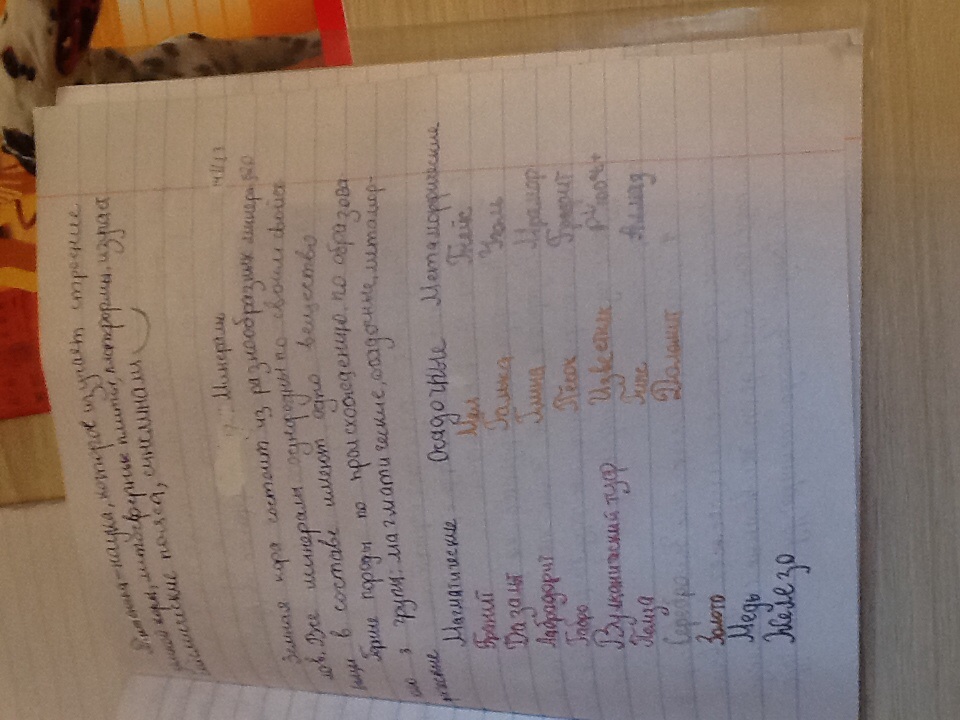 Тектоника-наука, которое изучает строение
земной коры, литосферные плиты, платформы, изучает
пояса, синклиналь
Минералы
Земная кора состоит из разнообразных минерало
лов. Все минералы однородны по своим свойст
вам в составе имеют одно вещество
Горные породы по происхождению по образова
на 3 групы: магматические, осадочные, метамор-
фические
Магматические Осадочные Метаморфические
Гранит Мел Гнейс
Базальт Галька Уголь
Лабрадорит Глина Мрамор
Габро Песок Графит
Вулканический туф Известняк
Пемза Гипс Алмаз
Серебро Доломит
Золото
Медь
Железо